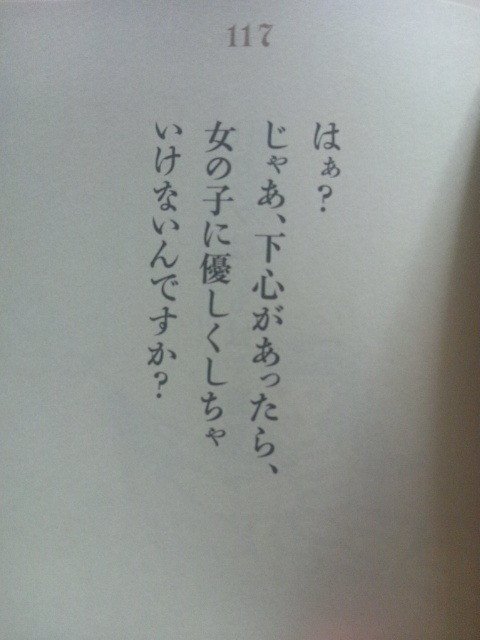 117
はぁ？
じゃあ、下心があったら、
女の子に優しくしちゃ
いけないんですか？